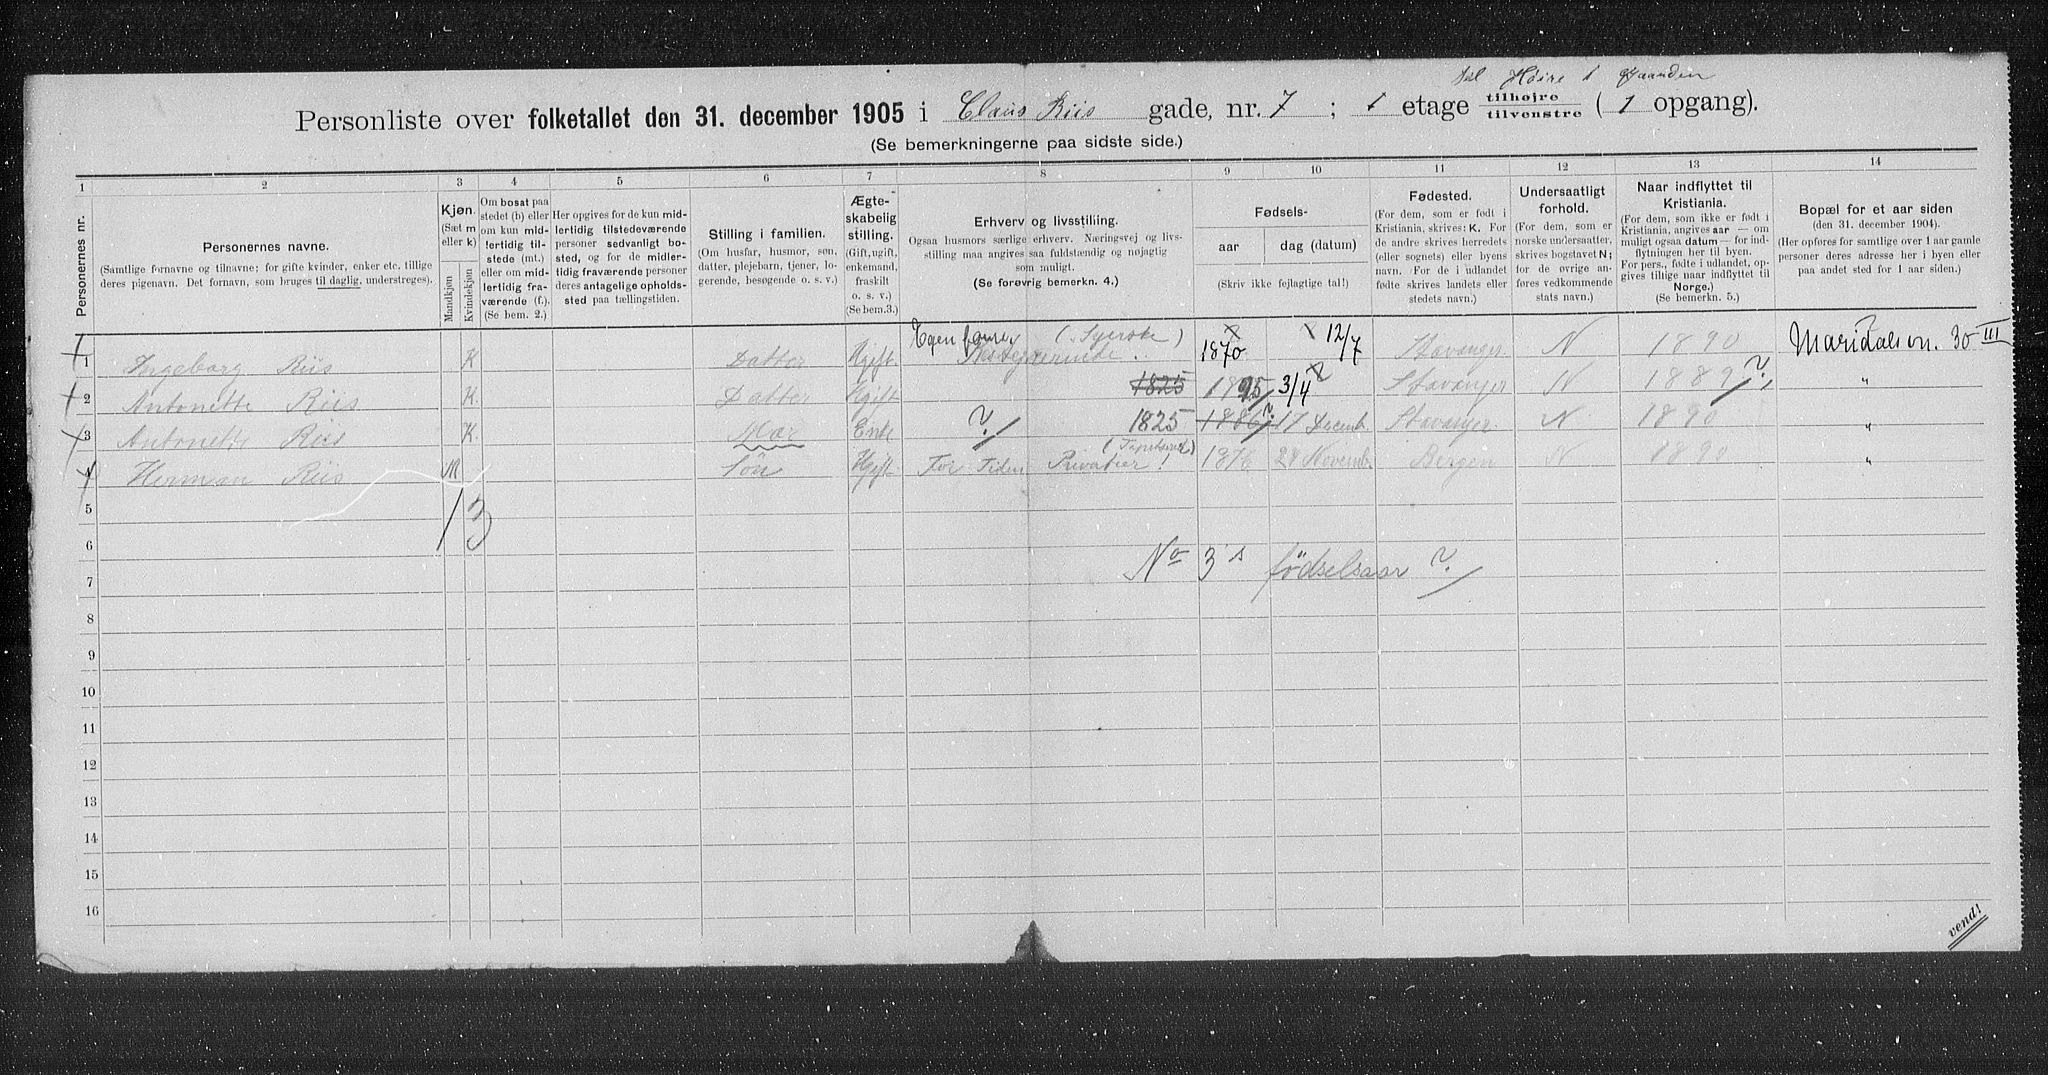 til Høire i Gaarden
Personliste over folketallet den 31. december 1905 i Claus Riis gade, nr. 7 ; 1 etage tilhøjre tilvenstre ( 1 opgang).
(Se bemerkningerne paa sidste side.)
1 2 3 4 5 6 7 8 9 10 11 12 13 14
Personernes nr.
Personernes navne.
(Samtlige fornavne og tilnavne; for gifte kvinder, enker etc. tillige
deres pigenavn. Det fornavn, som bruges til daglig, understreges).
Kjøn.
(Sæt m
eller k)
Mandkjøn
Kvindekjøn
Om bosat paa
stedet (b) eller
om kun mid-
lertidig til-
stede (mt.)
eller om mid-
lertidig fra-
værende (f.).
(Se bem. 2.)
Her opgives for de kun mid-
lertidig tilstedeværende
personer sedvanligt bo-
sted, og for de midler-
tidig fraværende personer
deres antagelige opholds-
sted paa tællingstiden.
Stilling i familien.
(Om husfar, husmor, søn,
datter, plejebarn, tjener, lo-
gerende, besøgende o. s. v.)
Ægte-
skabelig
stilling.
(Gift, ugift,
enkemand,
fraskilt
o. s. v.)
(Se bem.3.)
Erhverv og livsstilling.
Ogsaa husmors særlige erhverv. Næringsvej og livs-
stilling maa angives saa fuldstændig og nøjagtig
som muligt.
(Se forøvrig bemerkn. 4.)
Fødsels-
aar dag (datum)
(Skriv ikke fejlagtige tal!)
Fødested.
(For dem, som er født i
Kristiania, skrives: K. For
de andre skrives herredets
(eller sognets) eller byens
navn. For de i udlandet
fødte skrives landets eller
stedets navn.)
Undersaatligt
forhold.
(For dem, som er
norske undersaatter,
skrives bogstavet N;
for de øvrige an-
føres vedkommende
stats navn.)
Naar indflyttet til
Kristiania.
(For dem, som ikke er født i
Kristiania, angives aar — om
muligt ogsaa datum — for ind-
flytningen her til byen.
For pers., fødte i udlandet, op-
gives tillige naar indflyttet til
Norge.)
(Se bemerkn. 5.)
Bopæl for et aar siden
(den 31. december 1904).
(Her opføres for samtlige over 1 aar gamle
personer deres adresse her i byen eller
paa andet sted for 1 aar siden.)
1 Ingeborg Riis K Datter Ugift (Syerske) 1870 12/7 Stavanger N 1890 Maridalsvn. 30 III
2 Antonette Riis K. Datter Ugift 1825 1895 3/4 Stavanger N 1889 ? "
3 Antonette Riis K. Mor Enke ? 1825 1886 ? 17 Decemb. Stavanger N 1890 "
4 Herman Riis M Søn Ugift For Tiden Privatier! 1876 28 Novemb. Bergen N 1890 "
5
1 3
6
No 3's fødselsaar ?
7
8
9
10
11
12
13
14
15
16
vend!